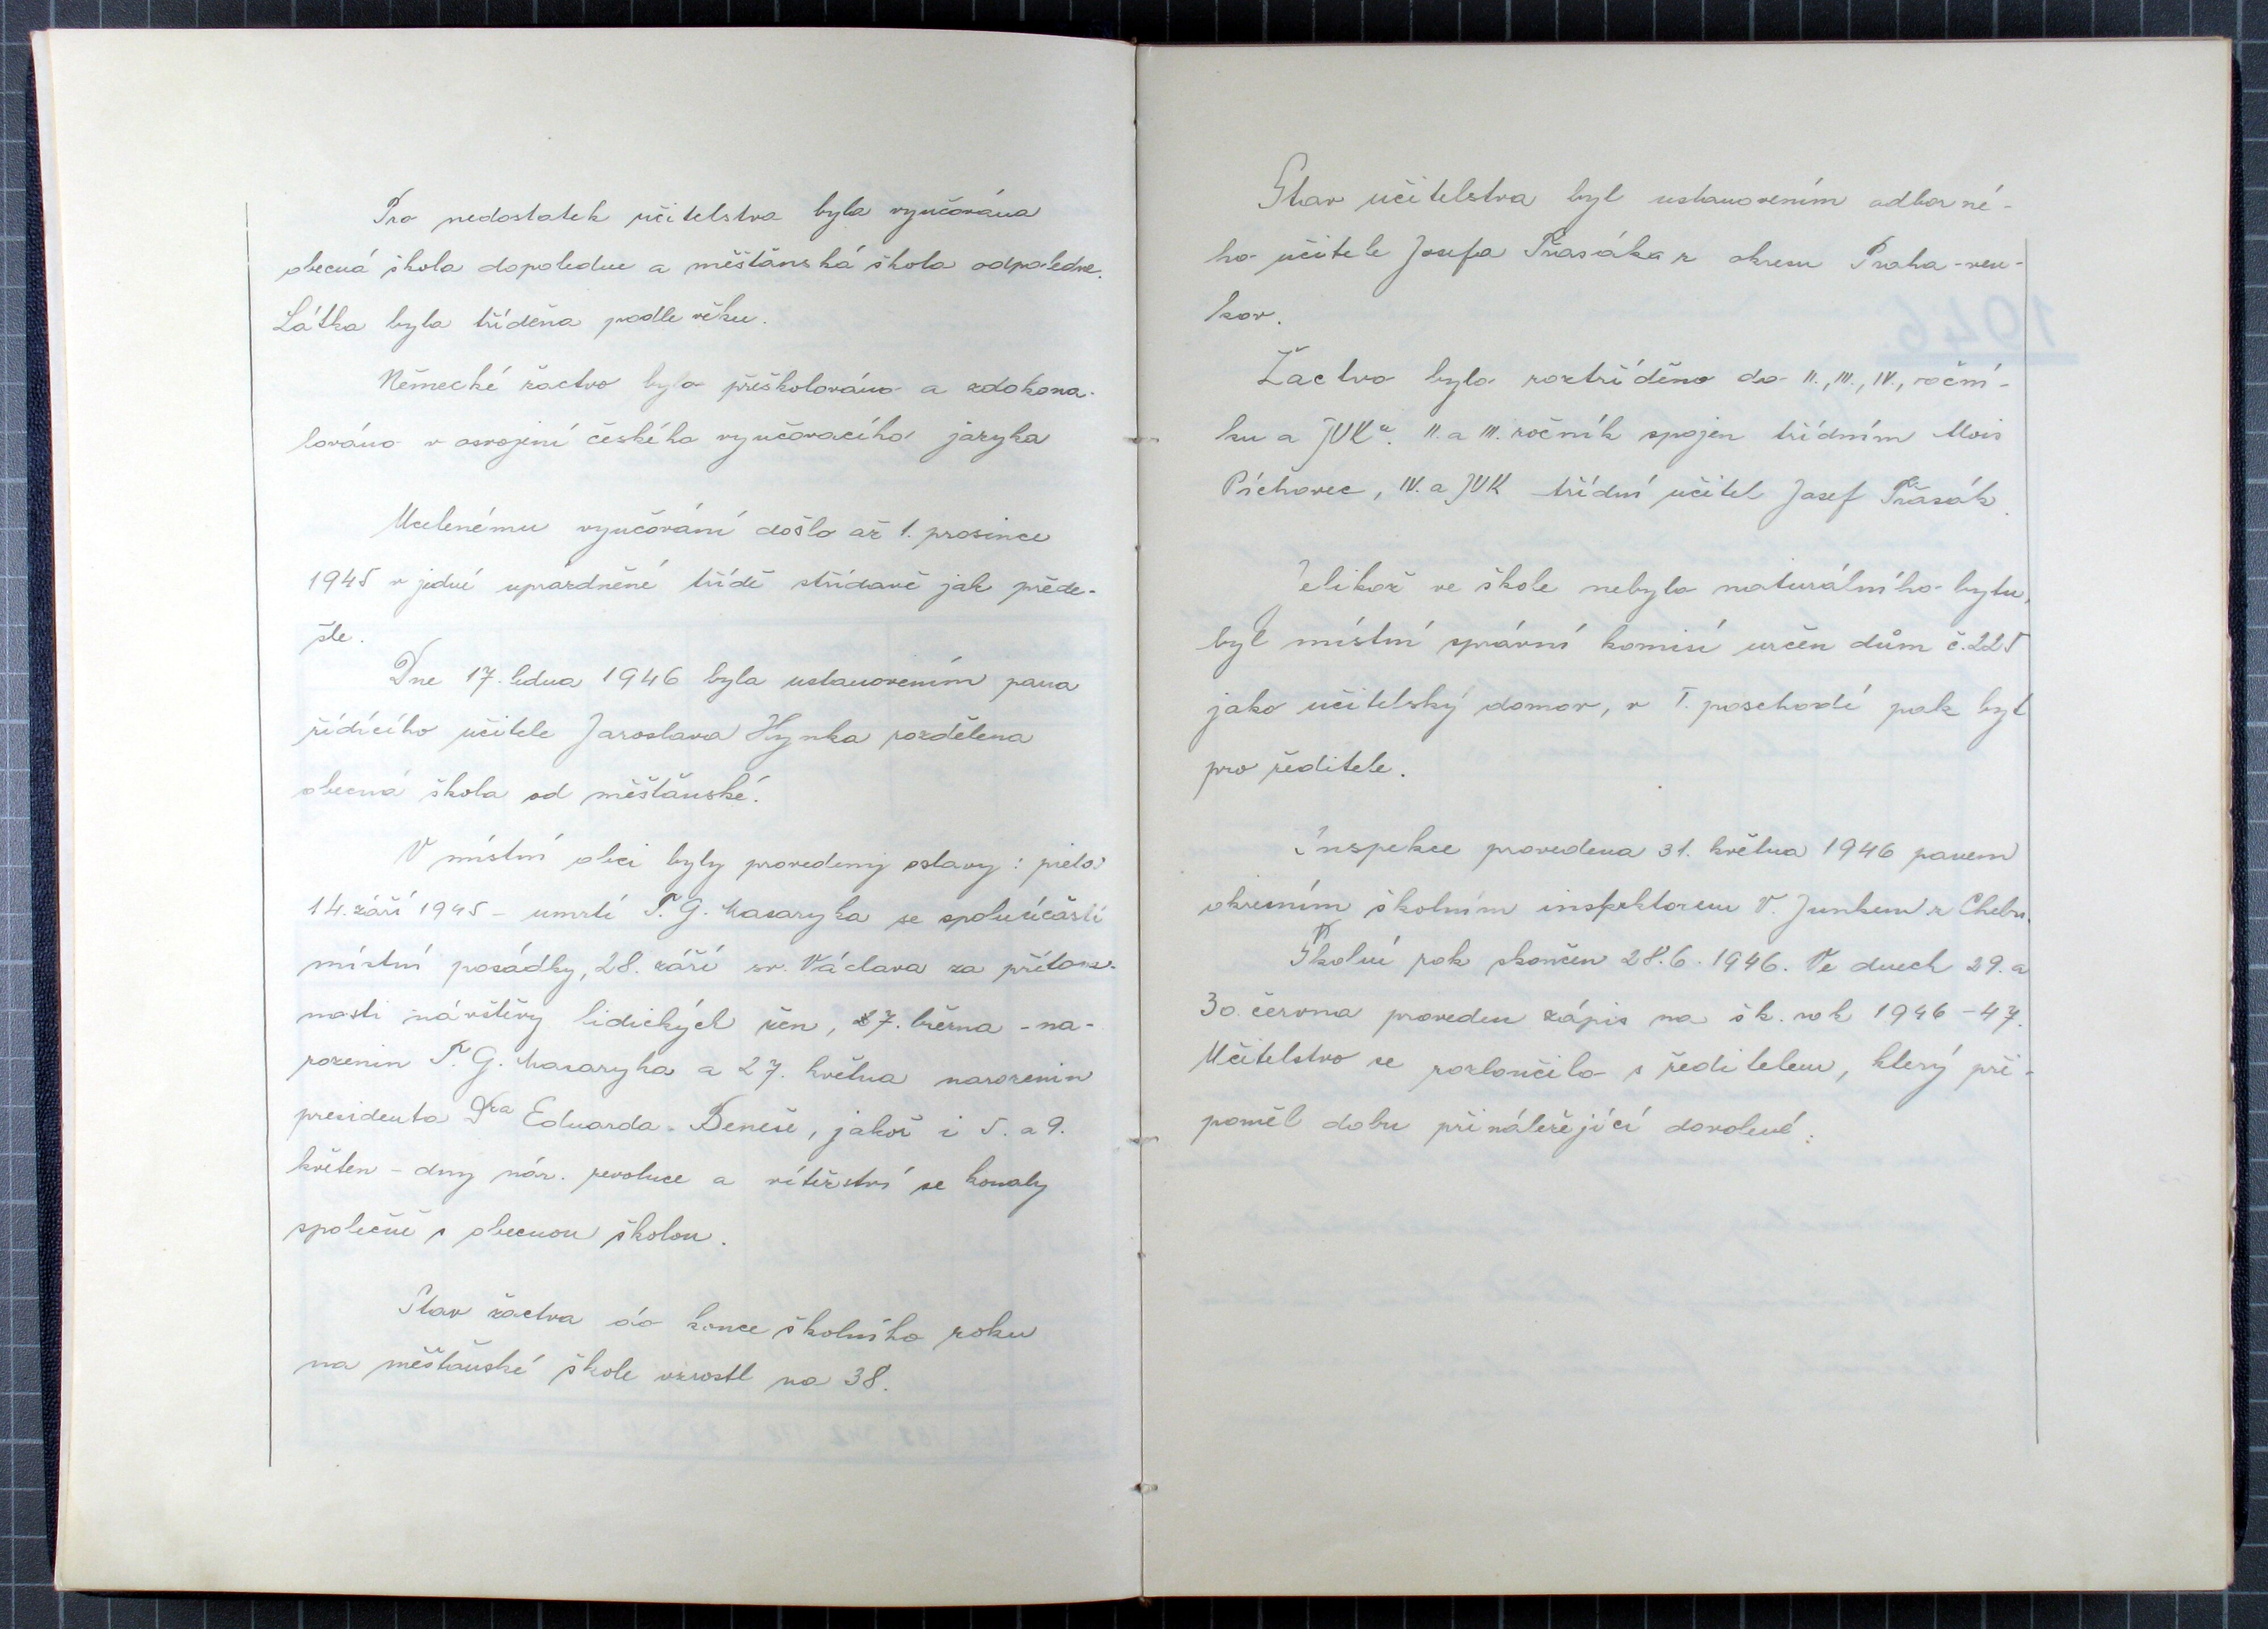 Pro nedostatek učitelstva byla vyučována
obecná škola dopoledne a měšťanská škola odpoledne.
Látka byla tříděna podle věku.
Německé žactvo bylo přeškolováno a zdokona-
lováno v osvojení českého vyučovacího jazyka
Ucelenému vyučování došlo až 1. prosince
1945 v jedné uprázdněné třídě střídavě jak přede-
šle.
Dne 17. ledna 1946 byla ustanovením pana
řídícího učitele Jaroslava Hynka rozdělena
obecná škola od měšťanské.
V místní obci byly provedeny oslavy: pieta
14. září 1945 - umrtí T. G. Masaryka se spoluúčastí
místní posádky, 28. září sv. Václava za přítom-
nosti návštěvy lidických žen, 7. března - na-
rozenin T. G. Masaryka a 27. května narozenin
presidenta Dra Eduarda Beneše, jakož i 5. a 9.
květen - dny nár. revoluce a vítězství se konaly
společně s obecnou školou.
Stav žactva do konce školního roku
na měšťanské škole vzrostl na 38.
Stav učitelstva byl ustanovením odborné-
ho učitele Josefa Prasáka z okresu Praha-ven-
kov.
Žactvo bylo roztříděno do II., III., IV., roční-
ku a JUK". II. a III. ročník spojen třídním Alois
Píchovec, IV. a JUK třídní učitel Josef Prasák.
Jelikož ve škole nebylo naturálního bytu,
byl místní správní komisí určen dům č. 225
jako učitelský domov, v I. poschodí pak byt
pro ředitele.
Inspekce provedena 31. května 1946 panem
okresním školním inspektorem V. Junkem z Chebu.
Školní rok skončen 28.6.1946. Ve dnech 29. a
30. června proveden zápis na šk. rok 1946-47.
Učitelstvo se rozloučilo s ředitelem, který při-
poměl dobu přináležející dovolené.
1946